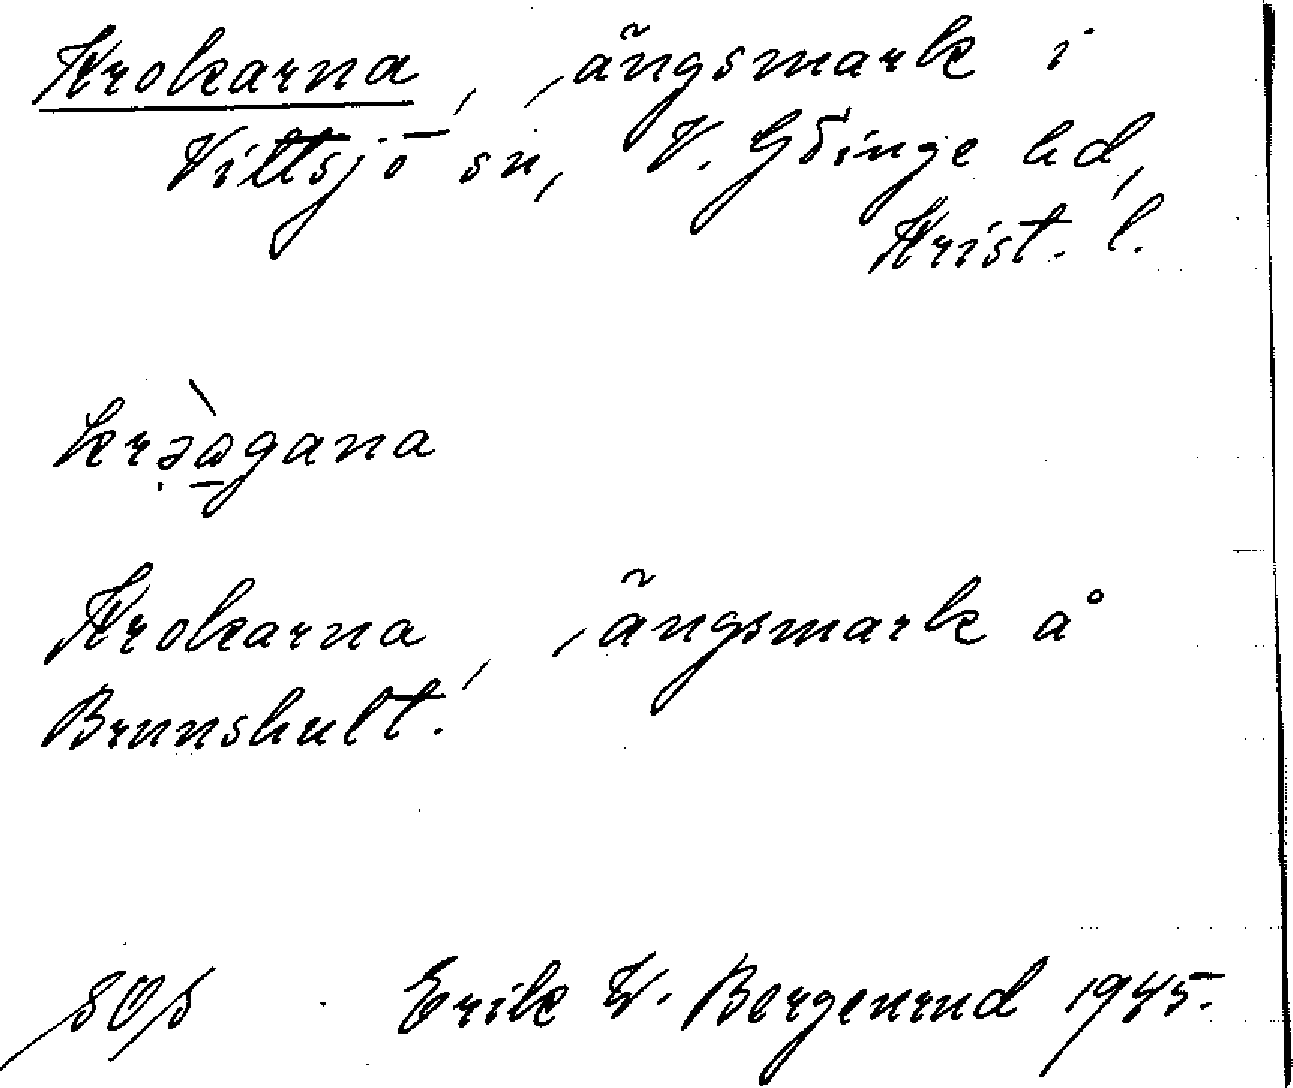 Krokarna, ängsmark i
Vittsjö sn, V. Göinge hd,
Krist. l.
krə̀agana
Krokarna, ängsmark å
Brunshult.
Erik W. Bergenrud 1945.